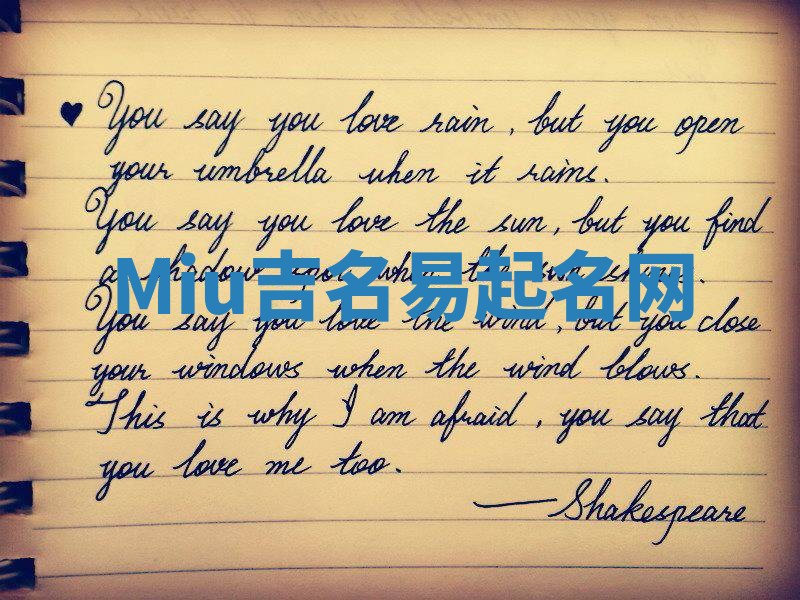 ♥ You say you love rain, but you open
your umbrella when it rains.
You say you love the sun, but you find
a shadow spot when the sun shines.
Miu吉名易起名网
You say you love the wind, but you close
your windows when the wind blows.
This is why I am afraid, you say that
you love me too.
—Shakespeare